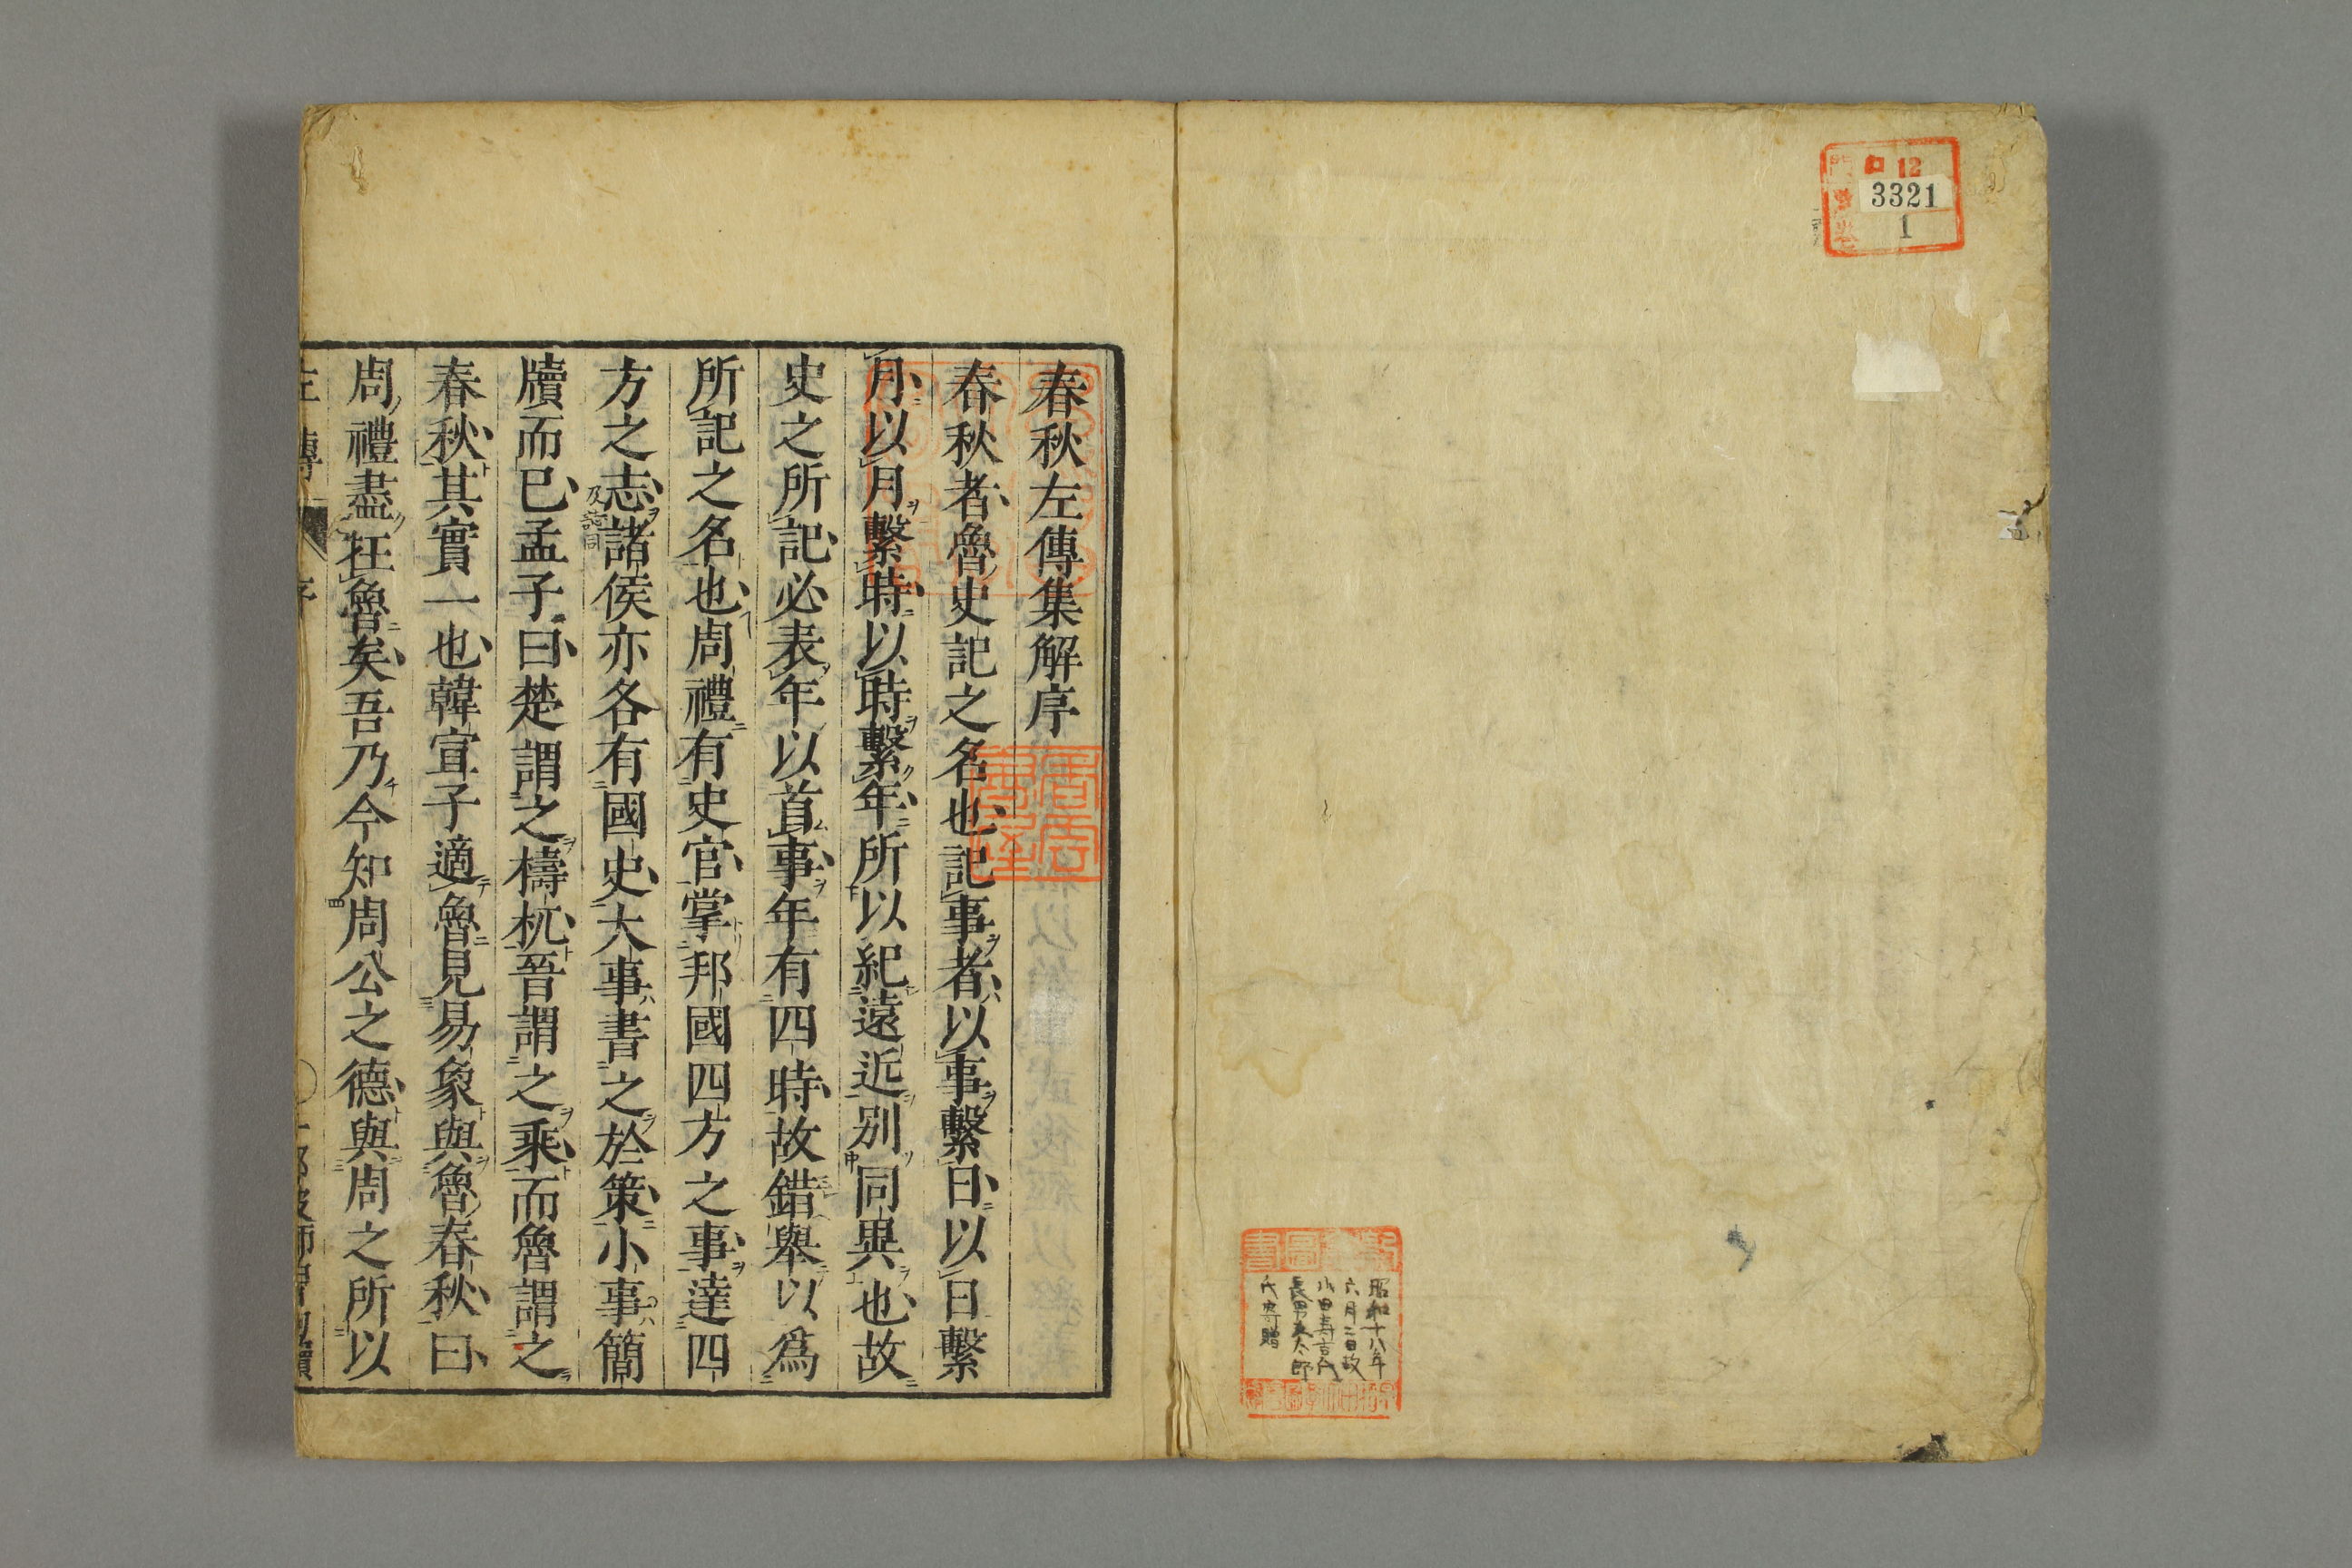 口 12
3321
1
昭和十八年
六月二日故
小田寿吉氏
長男英太郎
氏寄贈
春秋左傳集解序
春秋者魯史記之名也記事者以事繫日以日繫
月以月繫時以時繫年所以紀遠近別同異也故
史之所記必表年以首事年有四時故錯舉以爲
所記之名也周禮有史官掌邦國四方之事達四
方之志諸侯亦各有國史大事書之於策小事簡
牘而已孟子曰楚謂之檮杌晉謂之乘而魯謂之
春秋其實一也韓宣子適魯見易象與魯春秋曰
周禮盡在魯矣吾乃今知周公之德與周之所以